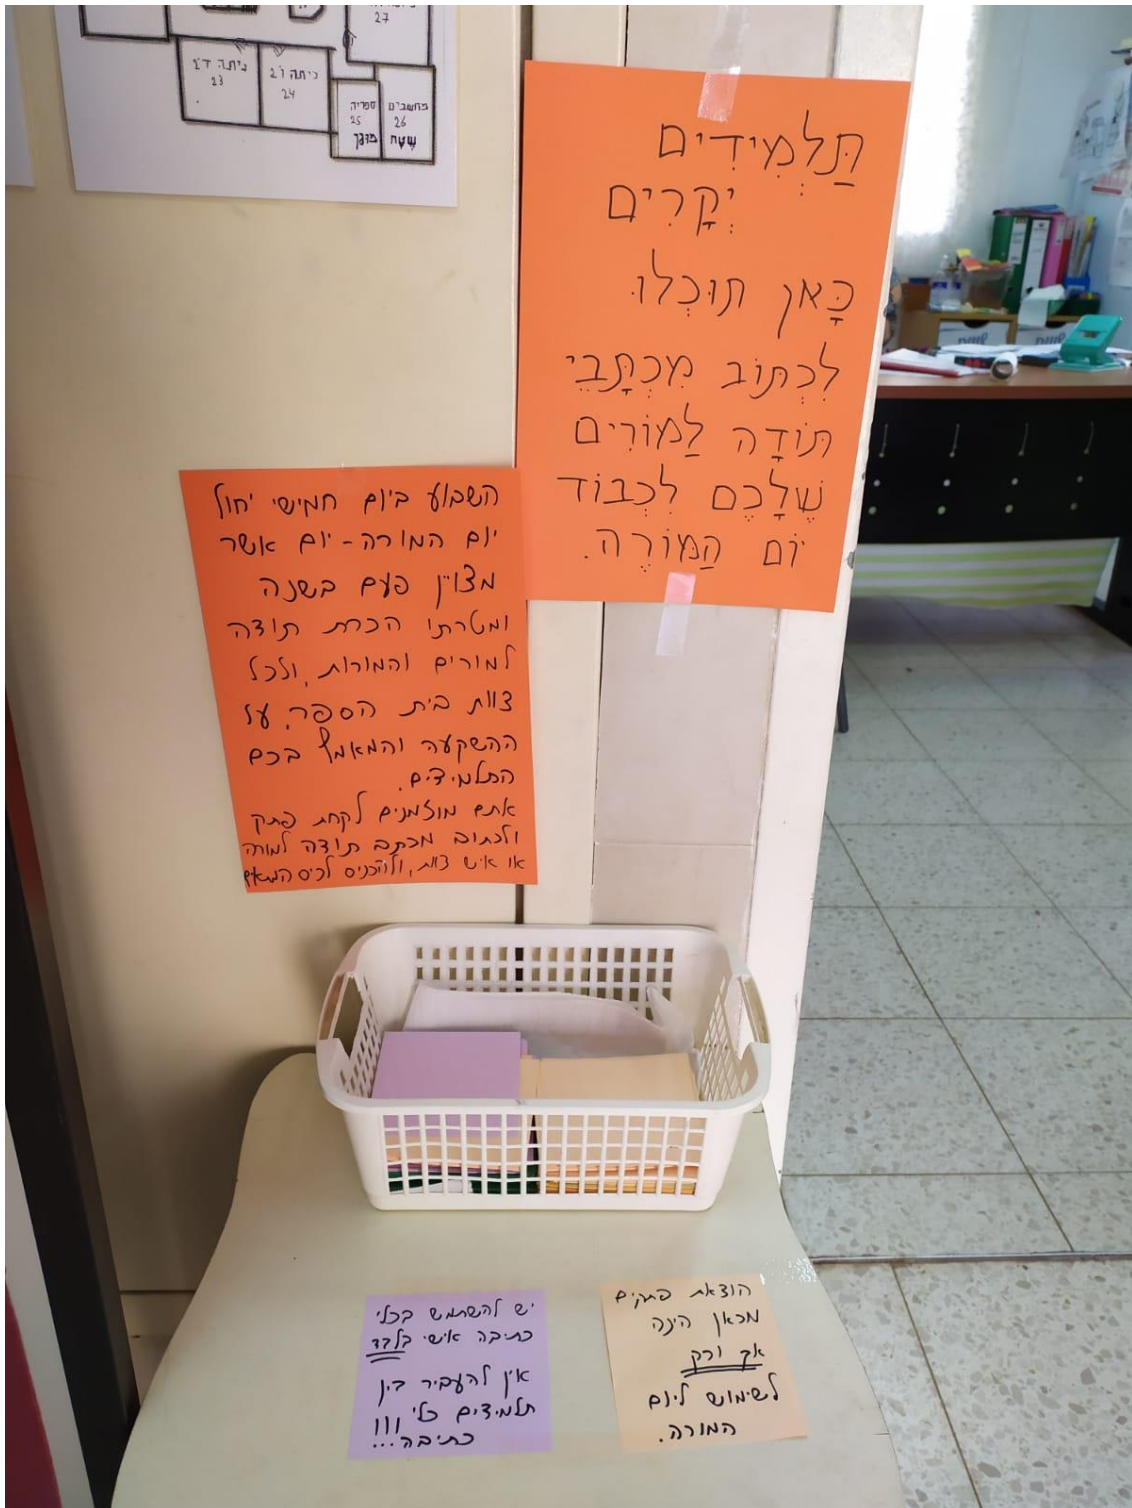 27
כיתה ד'2
23
כיתה ו'2
24
ספריה
25
מחשבים
26
תַּלְמִידִים
יְקָרִים
כָּאן תוּכְלוּ
לִכְתּוֹב מִכְתָּבֵי
תּוֹדָה לַמּוֹרִים
שֶׁלָּכֶם לִכְבוֹד
יוֹם הַמּוֹרֶה.
השבוע ביום חמישי יחול
יום המורה - יום אשר
מצוין פעם בשנה
ומטרתו הכרת תודה
למורים והמורות, ולכל
צוות בית הספר, על
ההשקעה והמאמץ בכם
התלמידים.
אתם מוזמנים לקחת פתק
ולכתוב מכתב תודה למורה
או איש צוות, ולהכניס לכיס המתאים
יש להשתמש בכלי
כתיבה אישי בלבד
אין להעביר בין
תלמידים כלי
כתיבה...!!!
הוצאת פתקים
מכאן הינה
אך ורק
לשימוש ליום
המורה.